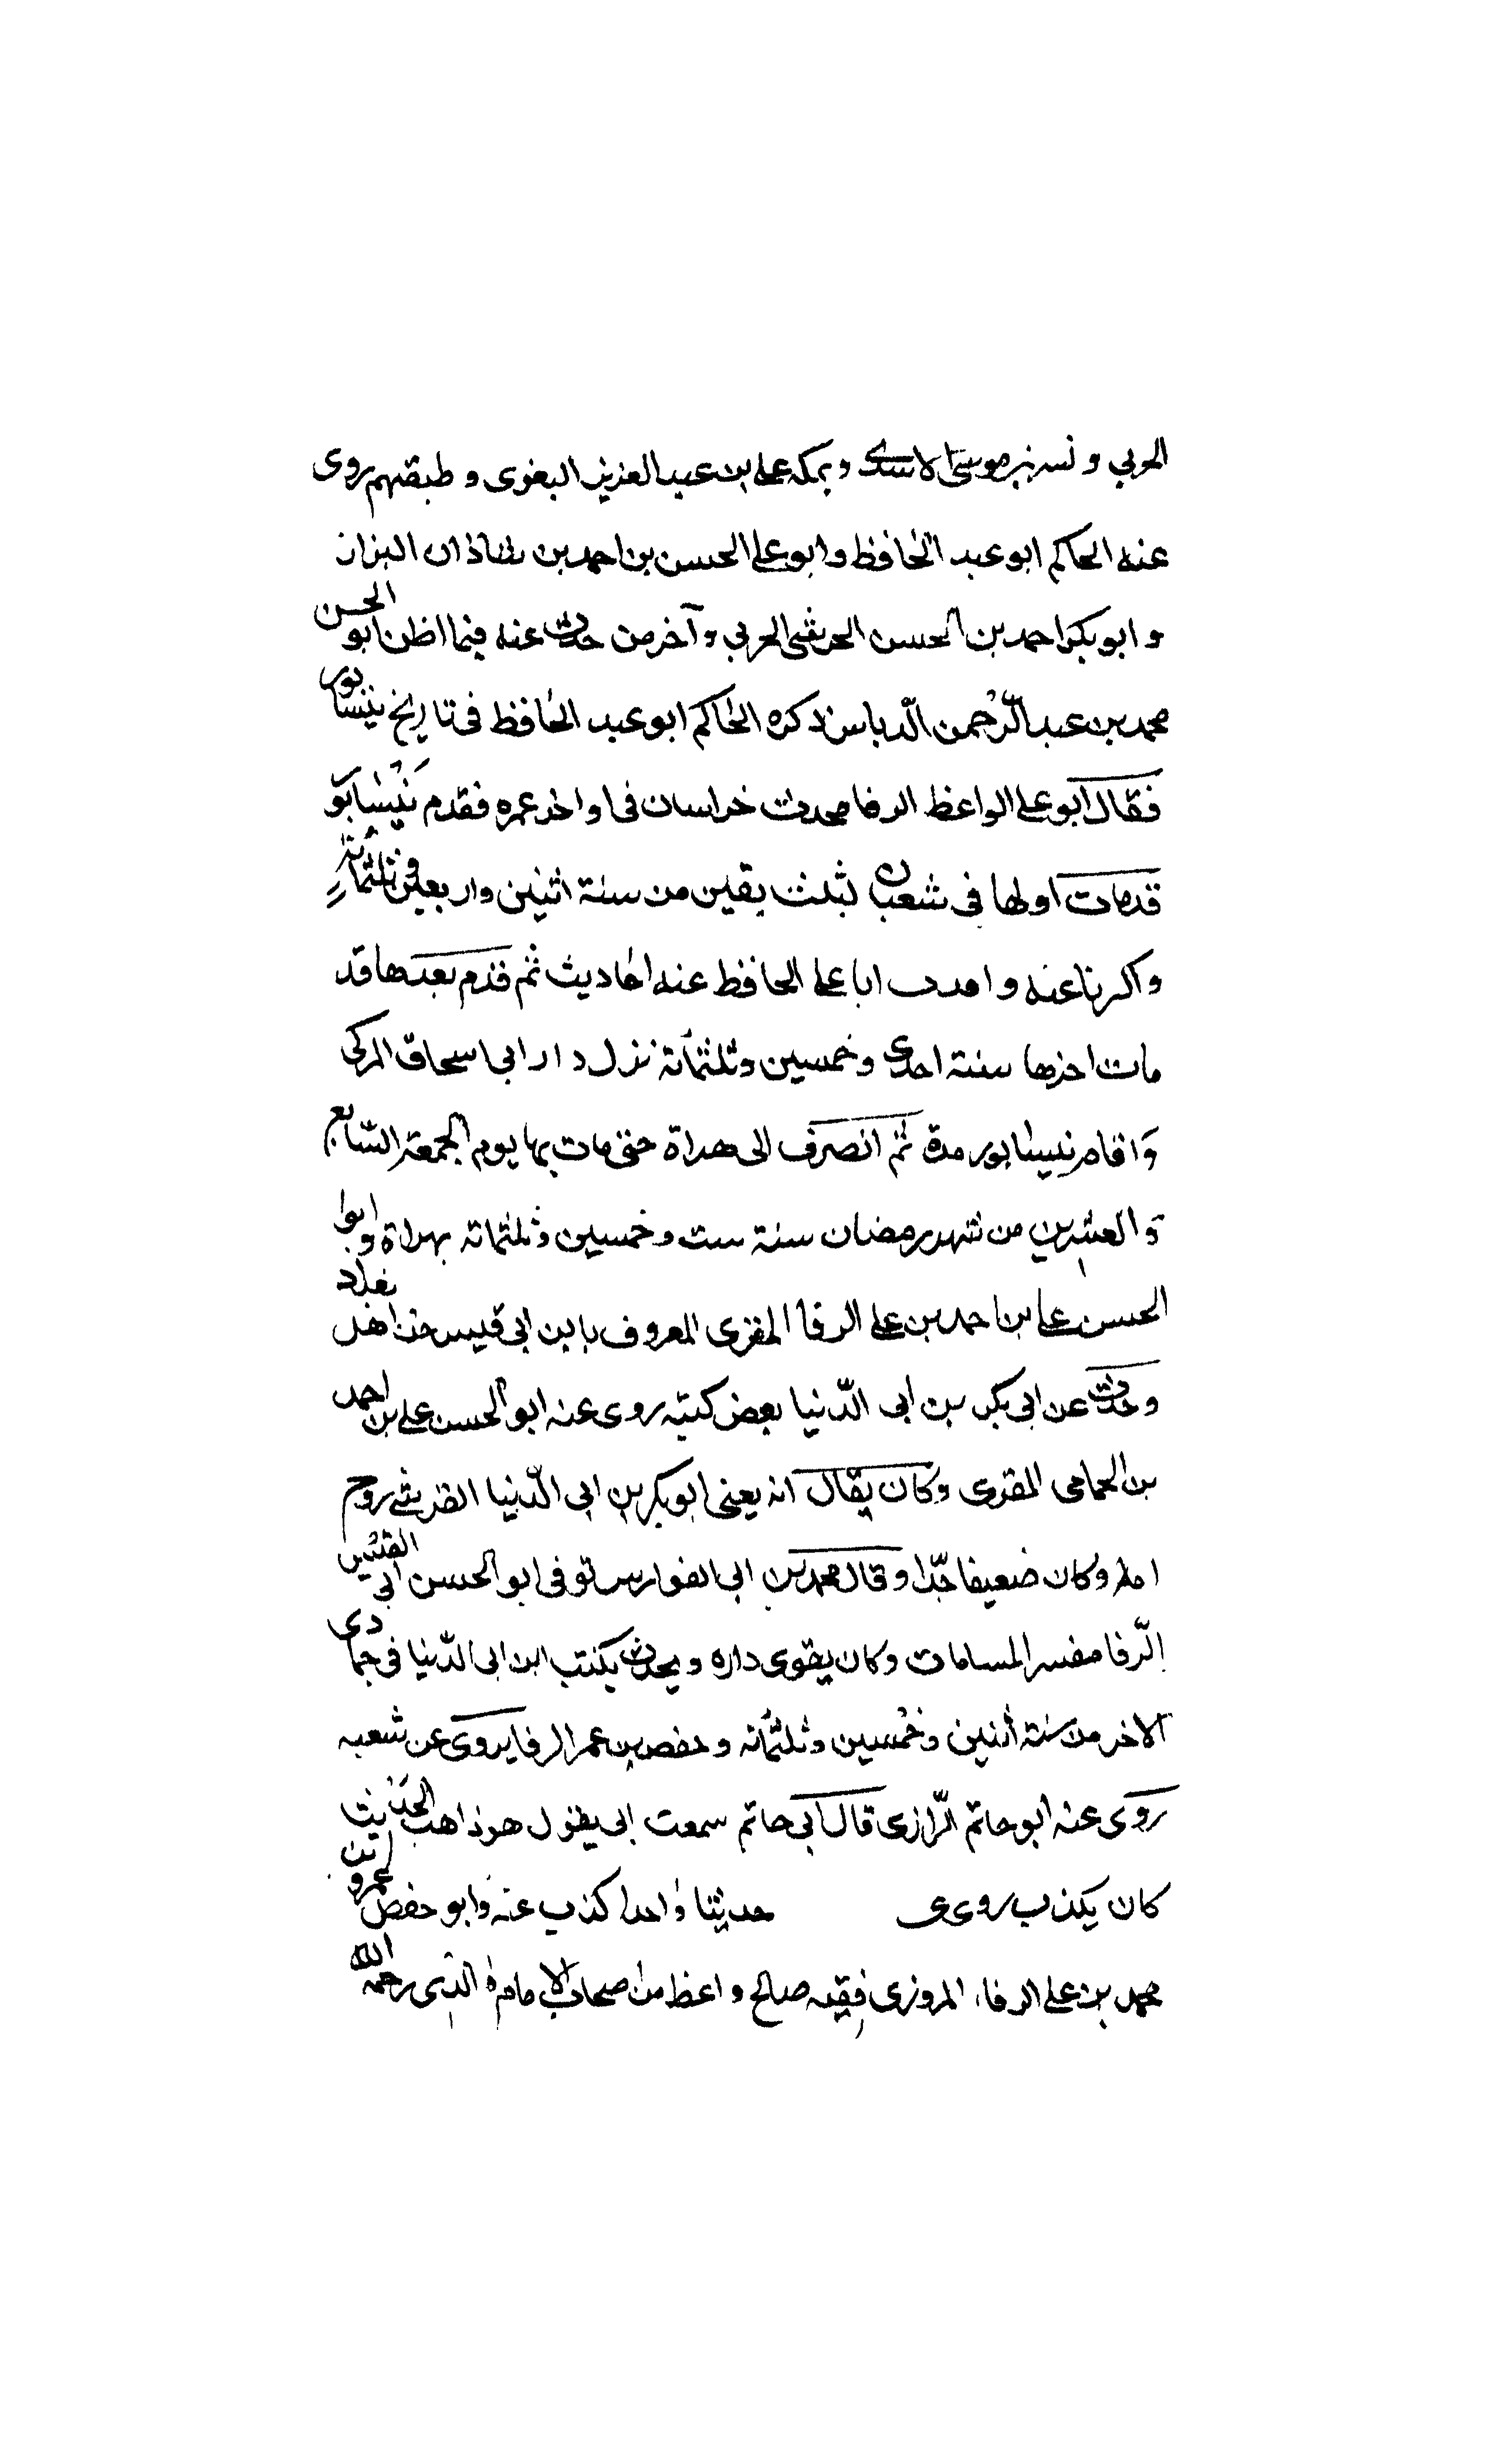 الحربي وبسر بن موسى الاسدي وبمكة علي بن عبد العزيز البغوى وطبقتهم روى
عنه الحاكم ابو عبد الحافظ وابو علي الحسن بن احمد بن شاذان البزاز
وابو بكر احمد بن الحسن الحرشي الحربي وآخر من حدث عنه فيما اظن ابو الحسن
محمد بن عبد الرّحمن الدّباس ذكره الحاكم ابو عبد الحافظ فى تاريخ نيسابور
فقال ابو علي الواعظ الرفا محدث خراسان فى اواخر عمره فقدم نيسابور
قدمات اولها فى شعبان لثلث بقين من سنة اثنين واربعين وثلثمائة
واكثرنا عنه و ابا علي الحافظ عنه احاديث ثم قدم بعدها قد
مات اخرها سنة احدى وخمسين وثلثمائة نزل دار ابى اسحاق المزكى
واقام نيسابور مدة ثم انصرف الى هراة حتى مات بها يوم الجمعة السّابع
والعشرين من شهر رمضان سنة ست وخمسين وثلثمائة بهراة وابو
الحسن علي بن احمد بن على الرفا المقرى المعروف بابن ابى قيس من اهل بغداد
وحدث عن ابى بكر بن ابى الدّنيا بعض كتبه روى عنه ابو الحسن علي بن احمد
بن الحمامى المقرى وكان يقال انه يعنى ابو بكر بن ابى الدّنيا القرشي زوج
امه وكان ضعيفا جّدا وقال محمد بن ابى الفوارس توفى ابو الحسن ابى القيس
الرّفا مفسر المنامات وكان يقوى داره ويحدث بكتب ابن ابى الدّنيا فى جمادى
الاخر من سنة أثنين وخمسين وثلثمائة وحفص بن عمر الرفا يروى عن شعبه
روى عنه ابو حاتم الرّازى قال ابى حاتم سمعت ابى يقول هو ذاهب الحديث
كان يكذب روى حديثا واحدا كذب عنه وابو حفص عمرو بن
محمد بن على الرفاء المروزى فقيه صالح واعظ من اصحاب الامام رحمه الله